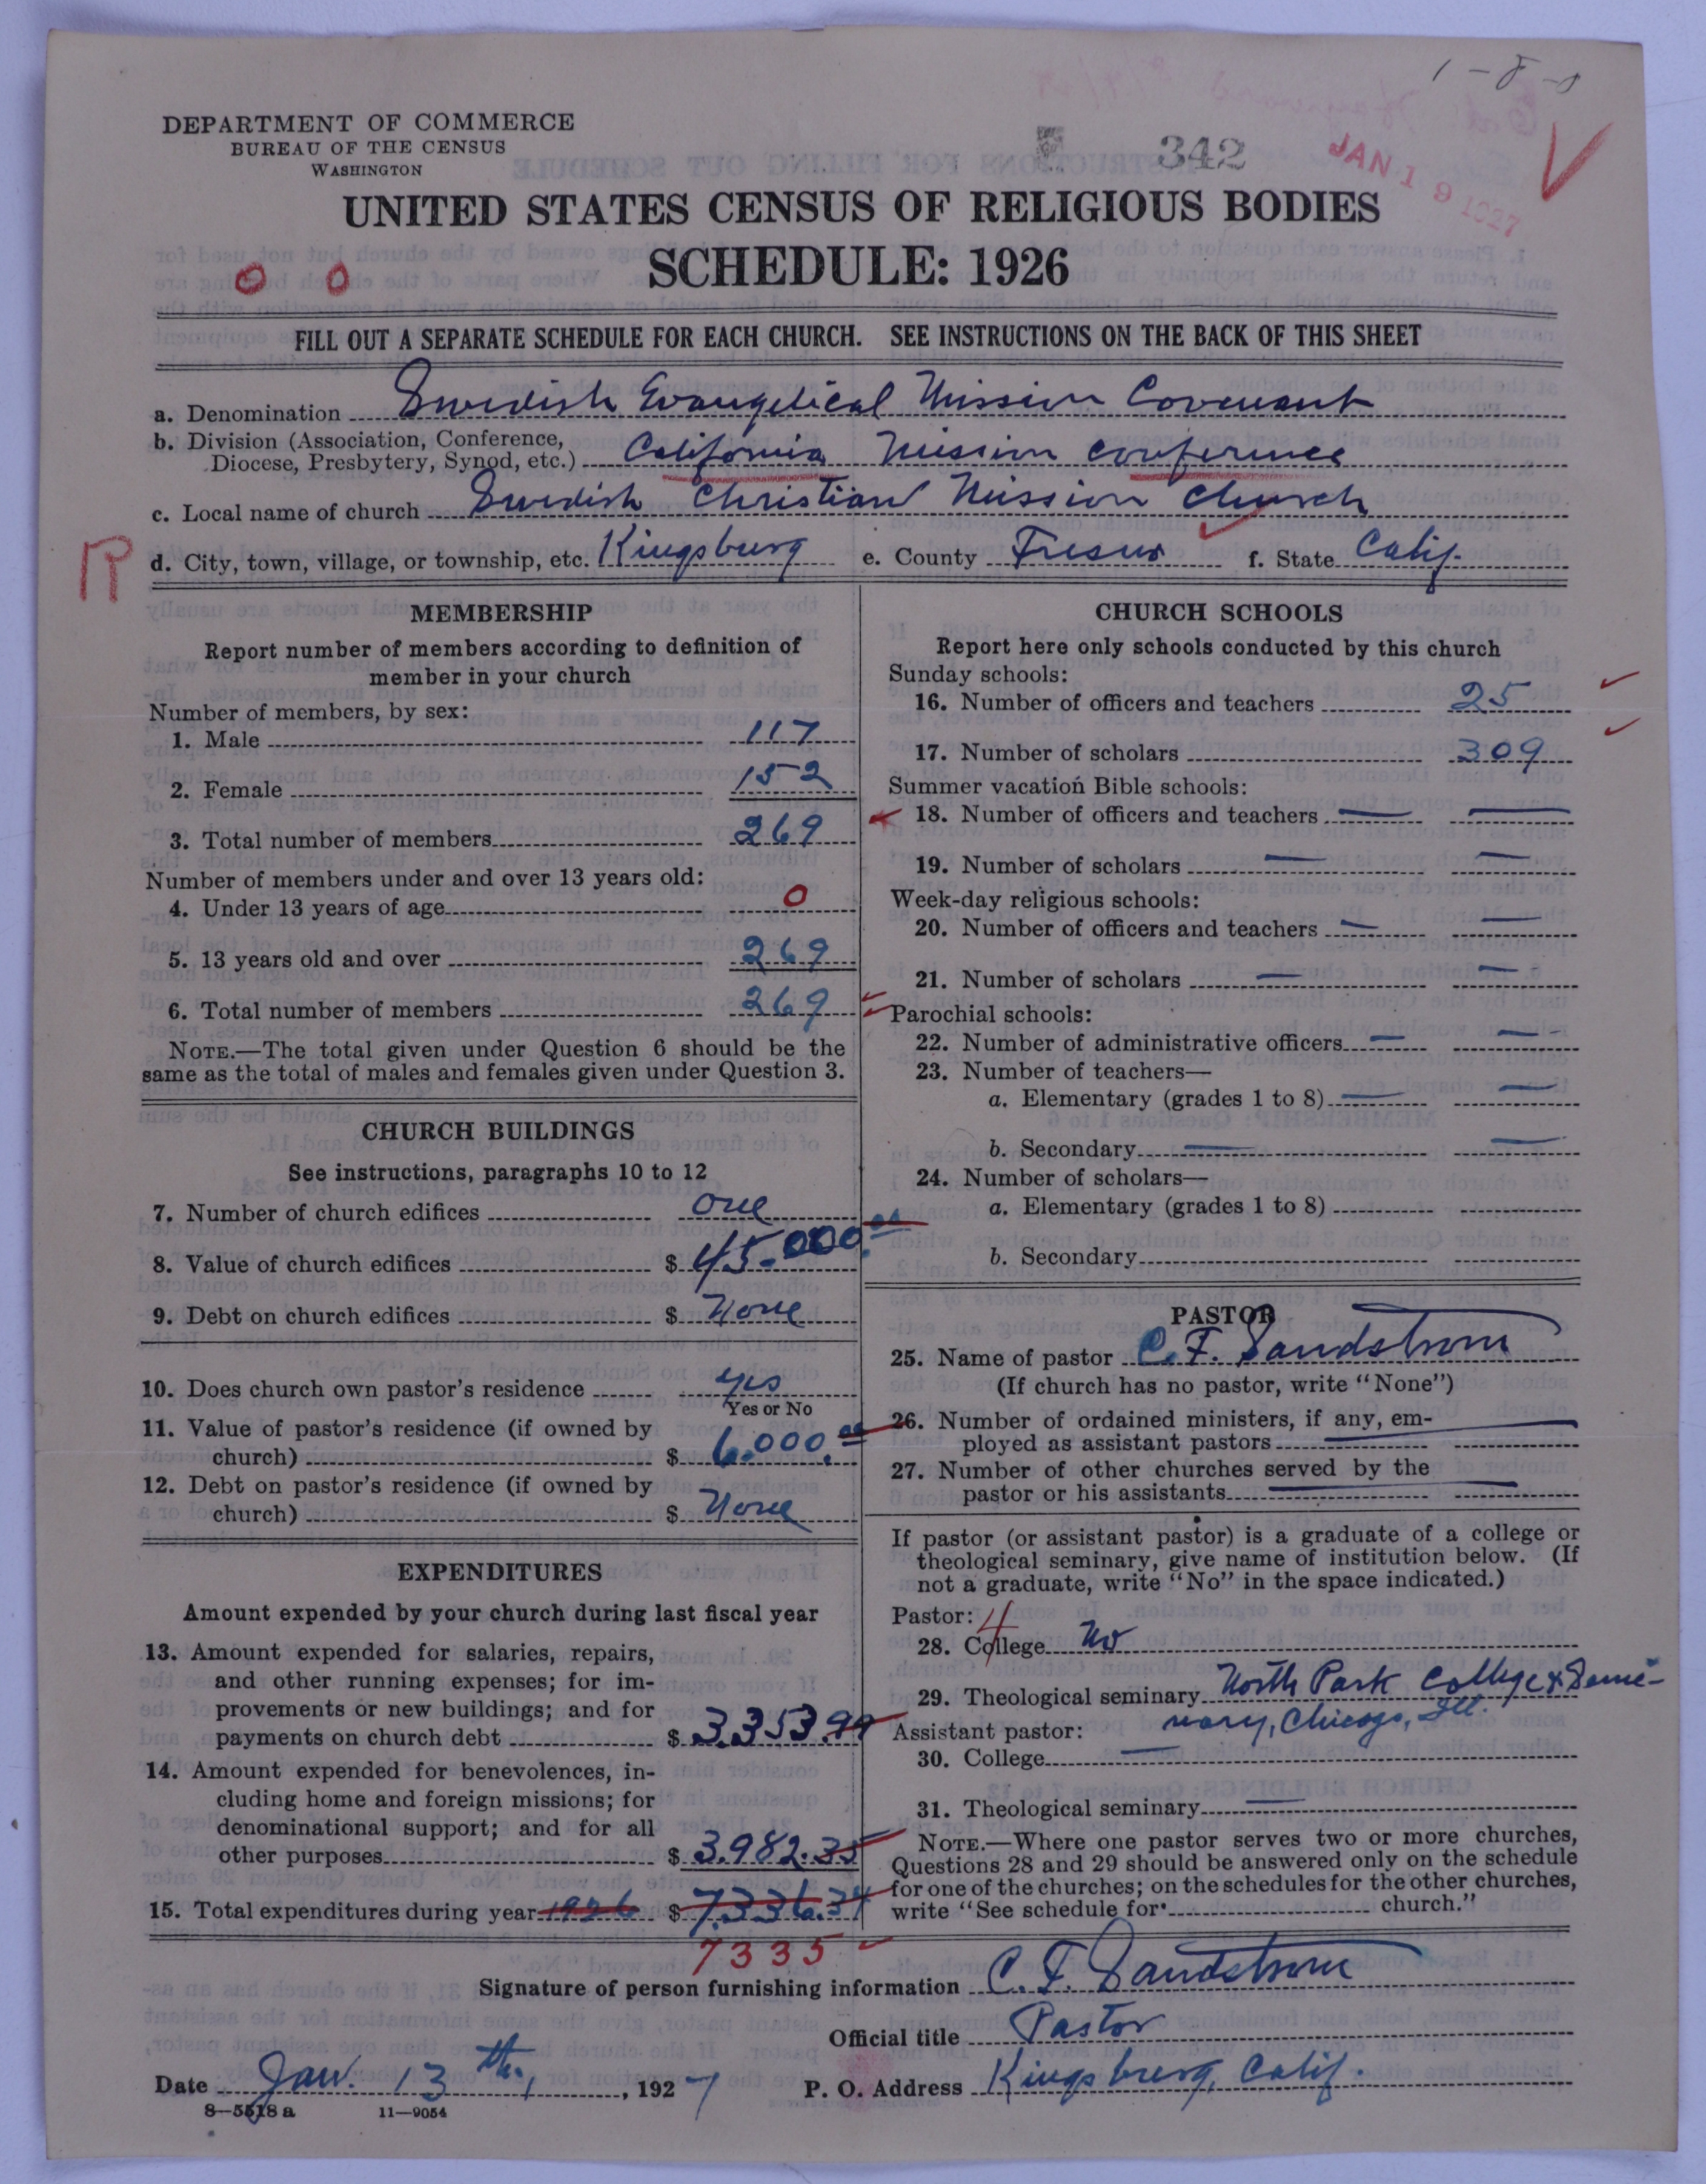 1-8-8
DEPARTMENT OF COMMERCE
BUREAU OF THE CENSUS
WASHINGTON
342
JAN 19 1927
UNITED STATES CENSUS OF RELIGIOUS BODIES
SCHEDULE: 1926
0 0
FILL OUT A SEPARATE SCHEDULE FOR EACH CHURCH. SEE INSTRUCTIONS ON THE BACK OF THIS SHEET
a. Denomination Swedish Evangelical Mission Covenant
b. Division (Association, Conference,
Diocese, Presbytery, Synod, etc.) California Mission Conference
c. Local name of church Swedish Christian Mission Church
R
d. City, town, village, or township, etc. Kingsburg e. County Fresno f. State Calif.
MEMBERSHIP
Report number of members according to definition of
member in your church
Number of members, by sex:
1. Male 117
2. Female 152
3. Total number of members 269
Number of members under and over 13 years old:
4. Under 13 years of age 0
5. 13 years old and over 269
6. Total number of members 269
NOTE.—The total given under Question 6 should be the
same as the total of males and females given under Question 3.
CHURCH BUILDINGS
See instructions, paragraphs 10 to 12
7. Number of church edifices one
8. Value of church edifices $ 45.000.00
9. Debt on church edifices $ None
10. Does church own pastor's residence yes
Yes or No
11. Value of pastor's residence (if owned by
church) $ 6.000.00
12. Debt on pastor's residence (if owned by
church) $ None
EXPENDITURES
Amount expended by your church during last fiscal year
13. Amount expended for salaries, repairs,
and other running expenses; for im-
provements or new buildings; and for
payments on church debt $ 3.353.99
14. Amount expended for benevolences, in-
cluding home and foreign missions; for
denominational support; and for all
other purposes $ 3.982.35
15. Total expenditures during year 1926 $ 7.336.34
7335
CHURCH SCHOOLS
Report here only schools conducted by this church
Sunday schools:
16. Number of officers and teachers 25
17. Number of scholars 309
Summer vacation Bible schools:
18. Number of officers and teachers — —
19. Number of scholars — —
Week-day religious schools:
20. Number of officers and teachers — —
21. Number of scholars — —
Parochial schools:
22. Number of administrative officers — —
23. Number of teachers—
a. Elementary (grades 1 to 8) — —
b. Secondary — —
24. Number of scholars—
a. Elementary (grades 1 to 8)
b. Secondary
PASTOR
25. Name of pastor C. F. Sandstrom
(If church has no pastor, write "None")
26. Number of ordained ministers, if any, em-
ployed as assistant pastors — —
27. Number of other churches served by the
pastor or his assistants — —
If pastor (or assistant pastor) is a graduate of a college or
theological seminary, give name of institution below. (If
not a graduate, write "No" in the space indicated.)
Pastor: 4
28. College No
29. Theological seminary North Park College & Semi-
nary, Chicago, Ill.
Assistant pastor:
30. College —
31. Theological seminary —
NOTE.—Where one pastor serves two or more churches,
Questions 28 and 29 should be answered only on the schedule
for one of the churches; on the schedules for the other churches,
write "See schedule for church."
Signature of person furnishing information C. F. Sandstrom
Official title Pastor
Date Jan. 13th, , 1927 P. O. Address Kingsburg, Calif.
8—5518 a 11—9054